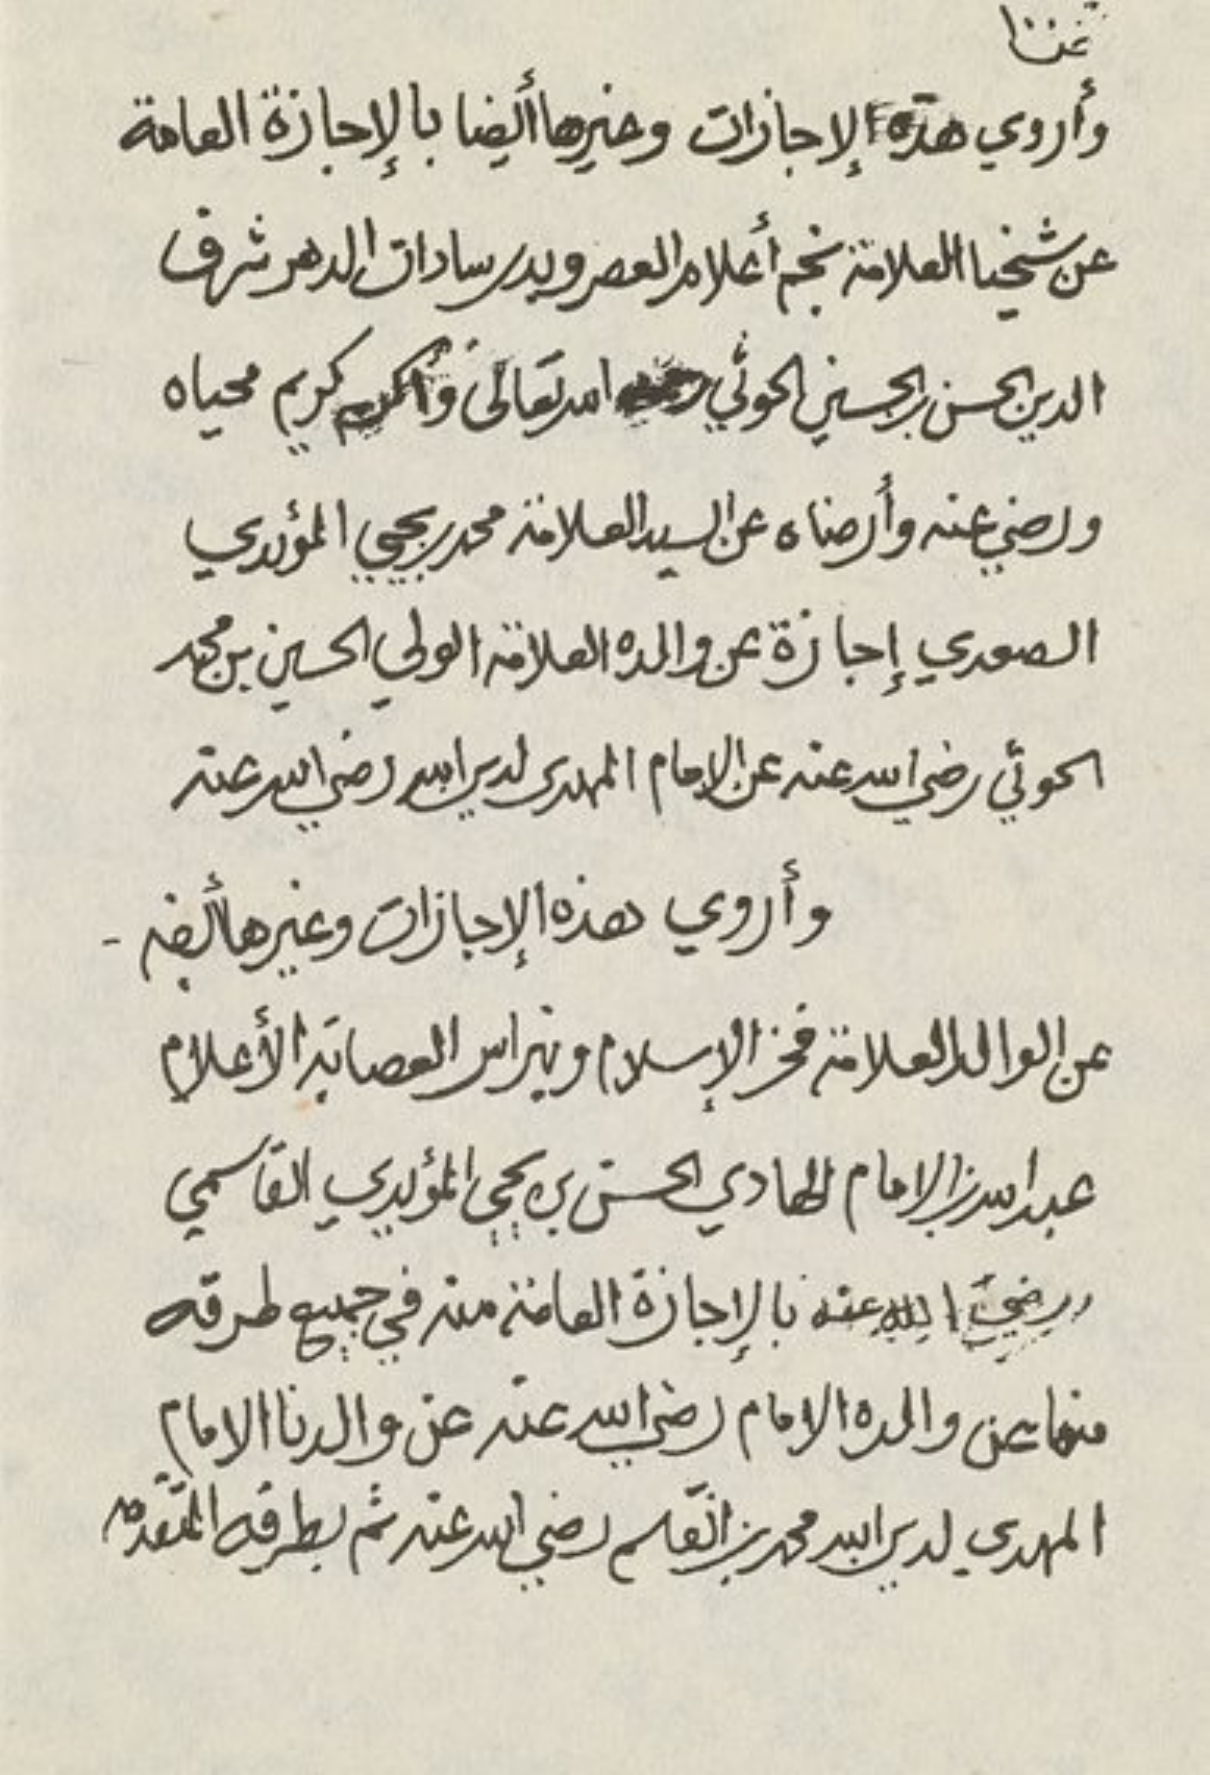 عننا
وأروي هذه الإجازات وغيرها أيضا بالإجازة العامة
عن شيخنا العلامة نجم أعلام العصر وبدر سادات الدهر شرف
الدين الحسن بن الحسين الحوثي الله تعالى وأكرم كريم محياه
ورضي عنه وأرضاه عن السيد العلامة محمد بن يحيى المؤيدي
الصعدي إجازة عن والده العلامة الولي الحسين بن محمد
الحوثي رضي الله عنه عن الامام المهدي لدين الله رضي الله عنه
وأروي هذه الإجازات وغيرها أيضا -
عن الوالد العلامة فخر الإسلام ونبراس العصابة الأعلام
عبد الله بن الامام الهادي الحسن بن يحيى المؤيدي القاسمي
رضي الله عنه بالإجازة العامة منه في جميع طرقه
منها عن والده الامام رضي الله عنه عن والدنا الامام
المهدي لدين الله محمد بن القاسم رضي الله عنه ثم بطرقه المتقدمه